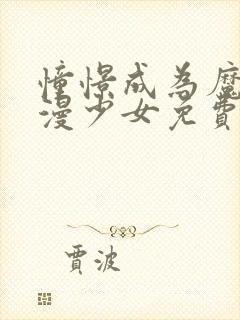 憧憬成為魔
漫少女免費
賈波